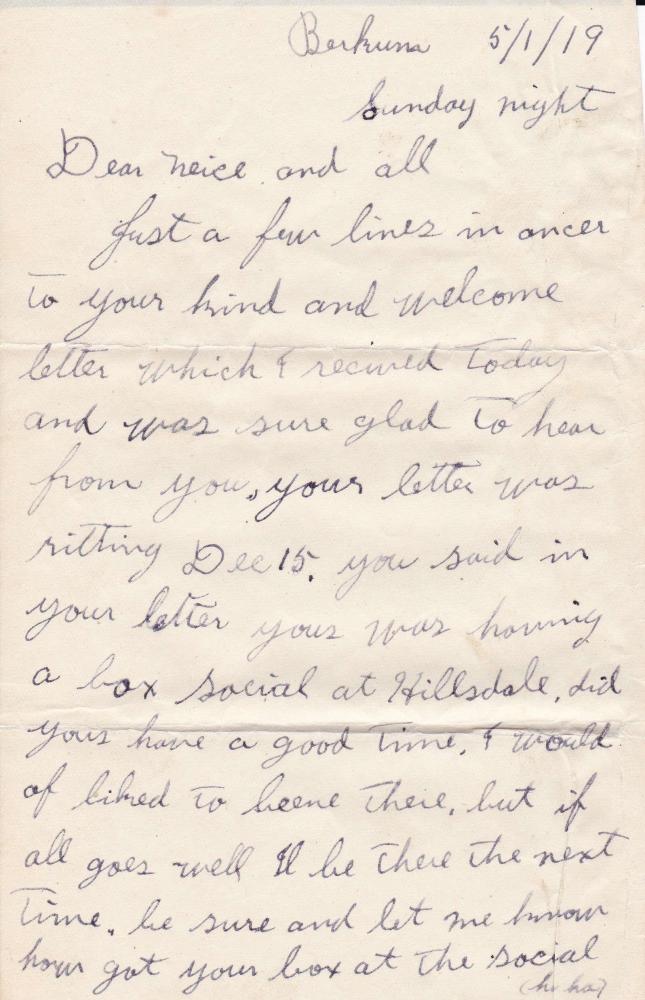 Berkum 5/1/19
Sunday night
Dear neice and all
Just a few lines in ancer
to your kind and welcome
letter which I recived today
and was sure glad to hear
from you, your letter was
ritting Dec 15. you said in
your letter yous was having
a box social at Hillsdale, did
yous have a good time. I would
of liked to beene there, but if
all goes well Il be there the next
time. be sure and let me know
how got your box at the social
(ha ha)